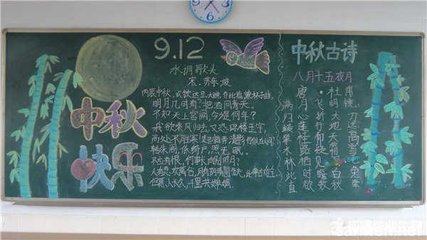 中秋
快乐
9.12
水调歌头
宋.苏东坡
丙辰中秋,欢饮达旦,大醉,作此篇,兼怀子由。
明月几时有?把酒问青天。
不知天上宫阙,今夕是何年?
我欲乘风归去,又恐琼楼玉宇,
高处不胜寒。起舞弄清影,何似在人间
转朱阁,低绮户,照无眠。
不应有恨,何事长向别时圆?
人有悲欢离合,月有阴晴圆缺,此事古难全
但愿人长久,千里共婵娟。
中秋古诗
八月十五夜月
唐·杜甫
满月飞明镜
归心折大刀
转蓬行地远
攀桂仰天高
水路疑霜雪
林栖见羽毛
此时瞻白兔
直欲数秋毫